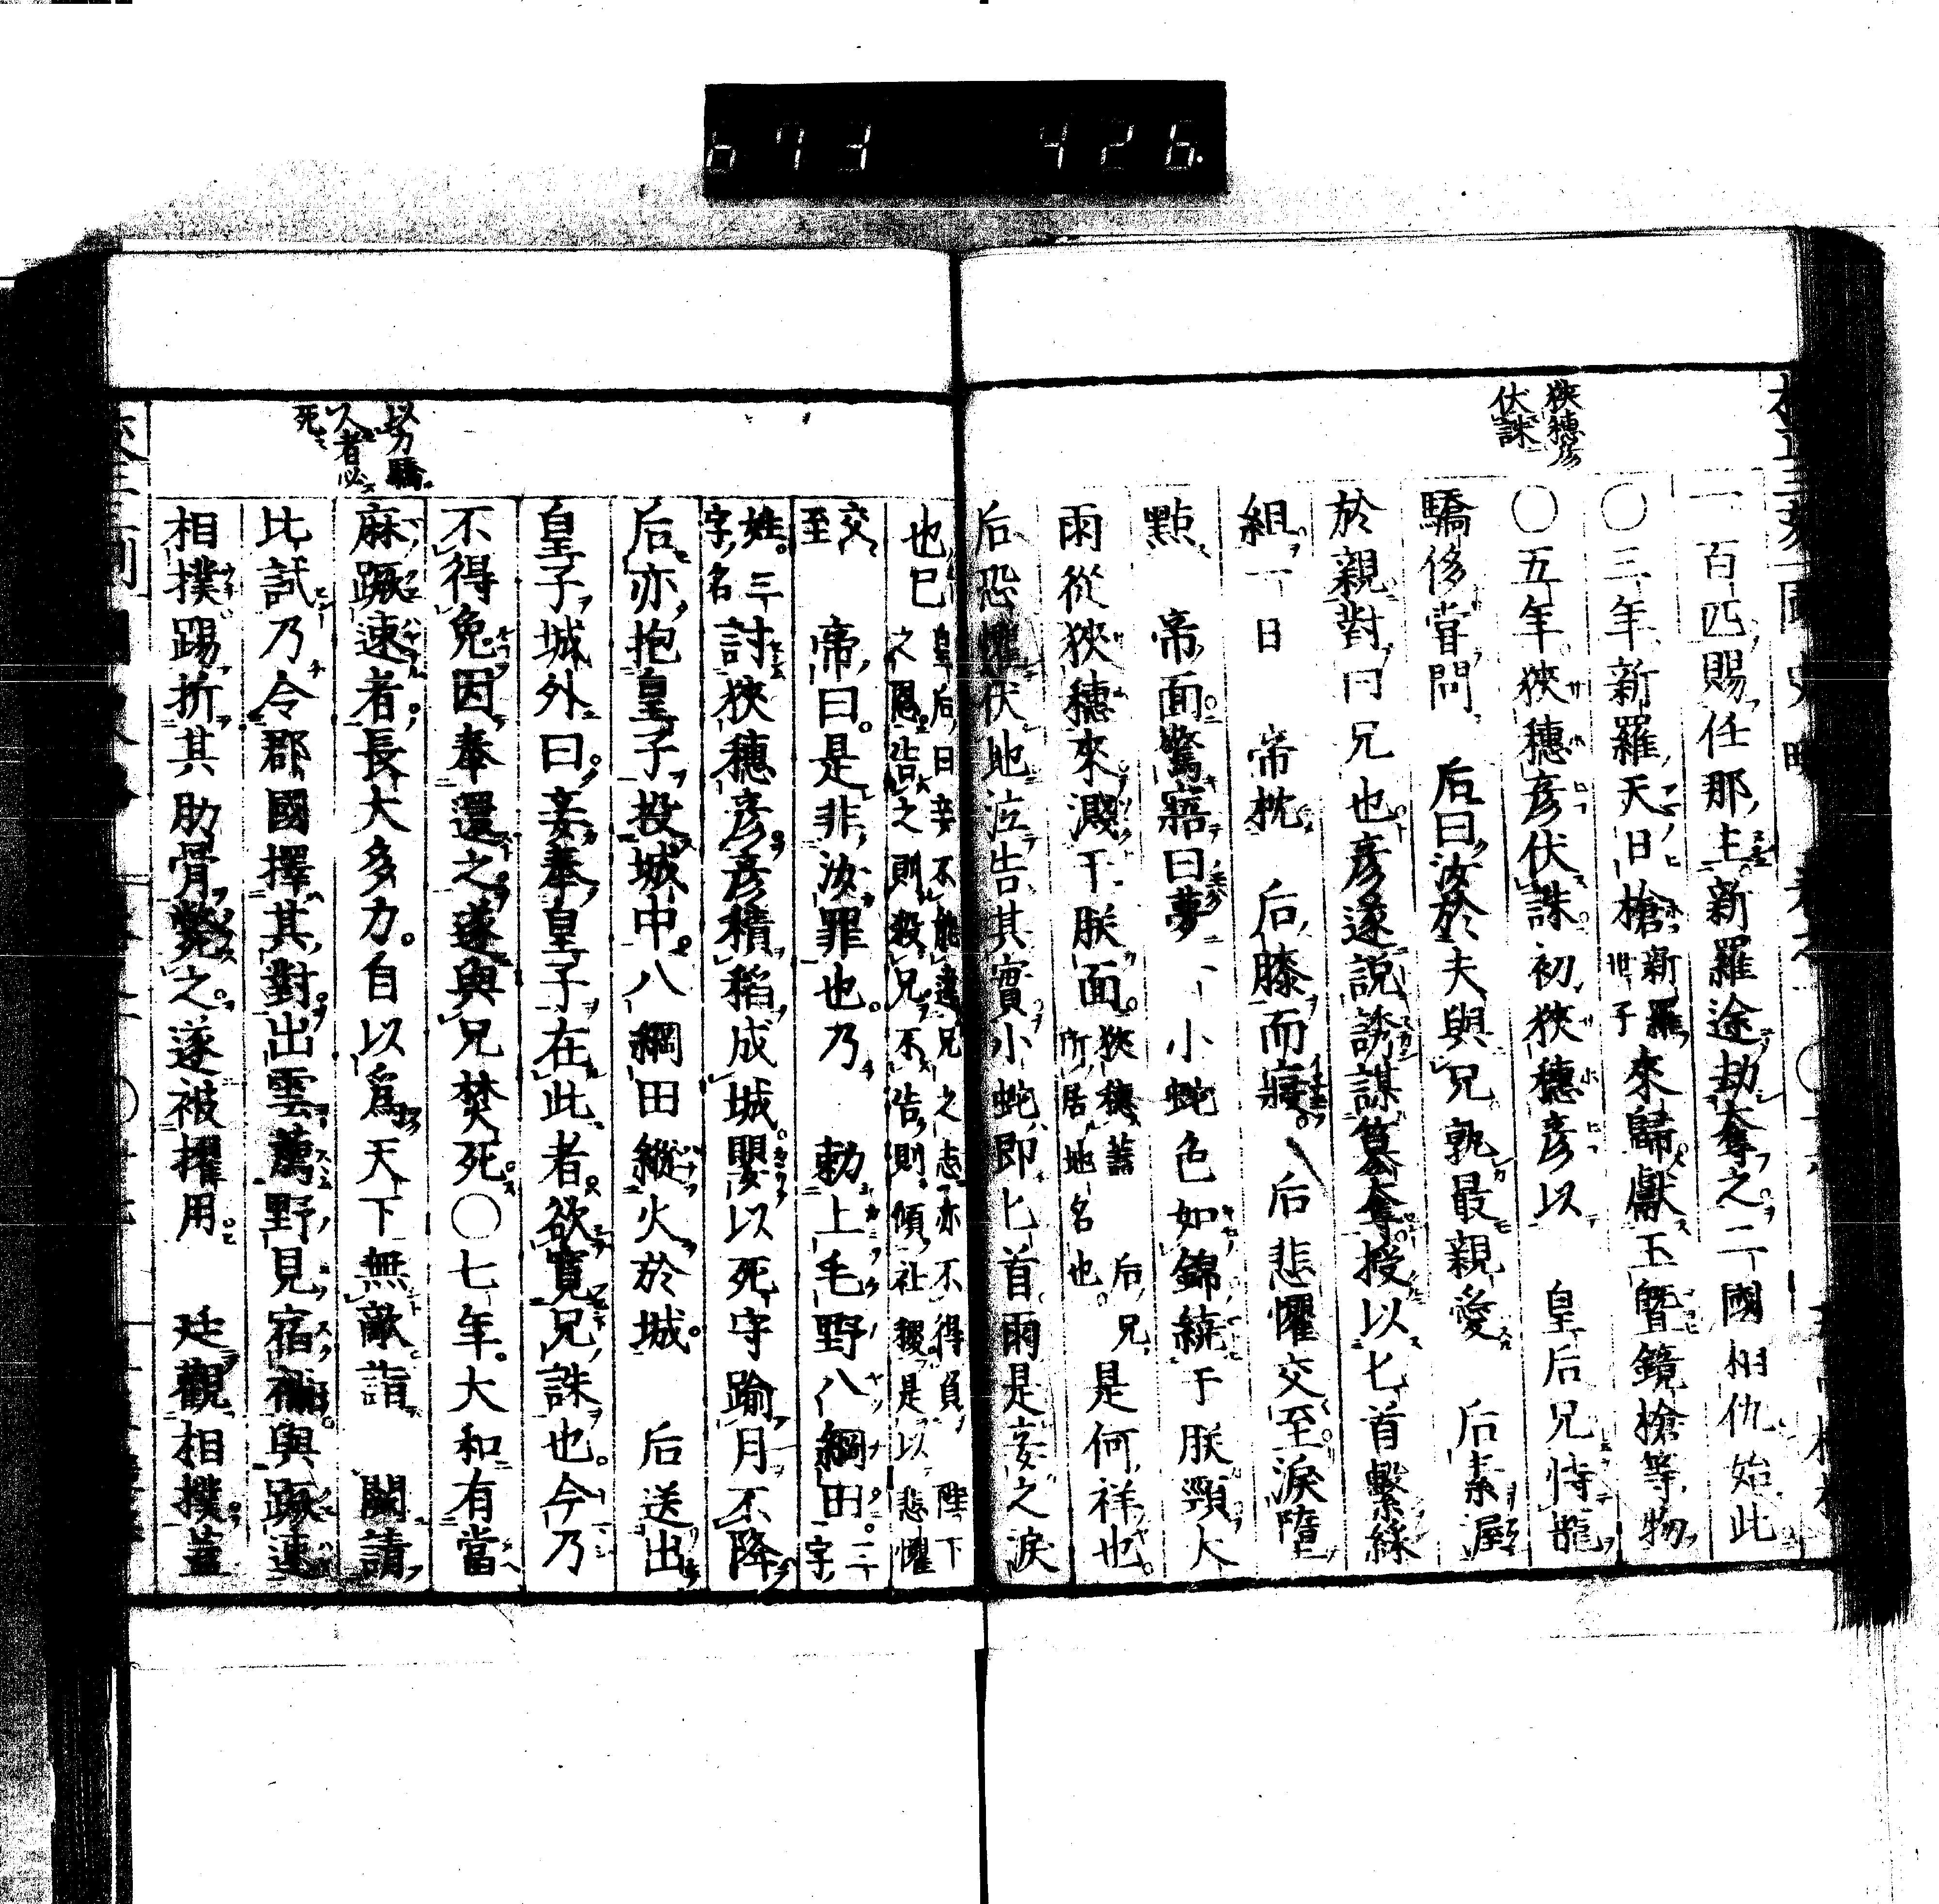 673 426.
狹穗彦
伏誅
一百匹賜任那主新羅途劫奪之二國相仇始此
○三年新羅天日槍新羅王子來歸獻玉曁鏡槍等物
○五年狹穗彦伏誅初狹穗彦以 皇后兄恃寵
驕侈嘗問 后曰汝於夫與兄孰最親愛 后素屋
於親對曰兄也彦遂說誘謀簒奪授以匕首繫綵
組一日 帝枕 后膝而寢 后悲懼交至淚墮
點 帝面驚寤曰夢 小蛇色如錦繞于朕頸大
雨從狹穗來濺于朕面狹穗蓋后兄所居地名也是何祥也
后恐懼伏地泣告其實小蛇即匕首雨是妾之淚
也已皇后曰妾不能違兄之志亦不得負 陛下之恩告之則殺兄不告則傾社稷是以悲懼
交至 帝曰是非汝罪也乃 勅上毛野八綱田二字
姓三字名討狹穗彦彦積稻成城嬰以死守踰月不降
后亦抱皇子投城中八綱田縱火於城 后送出
皇子城外曰妾奉皇子在此者欲寬兄誅也今乃
不得免因奉還之遂與兄焚死○七年大和有當
以力驕
人者必
死
麻蹶速者長大多力自以爲天下無敵詣 闕請
比試乃令郡國擇其對出雲薦野見宿禰與蹶速
相撲踢折其肋骨斃之遂被擢用 廷觀相撲蓋